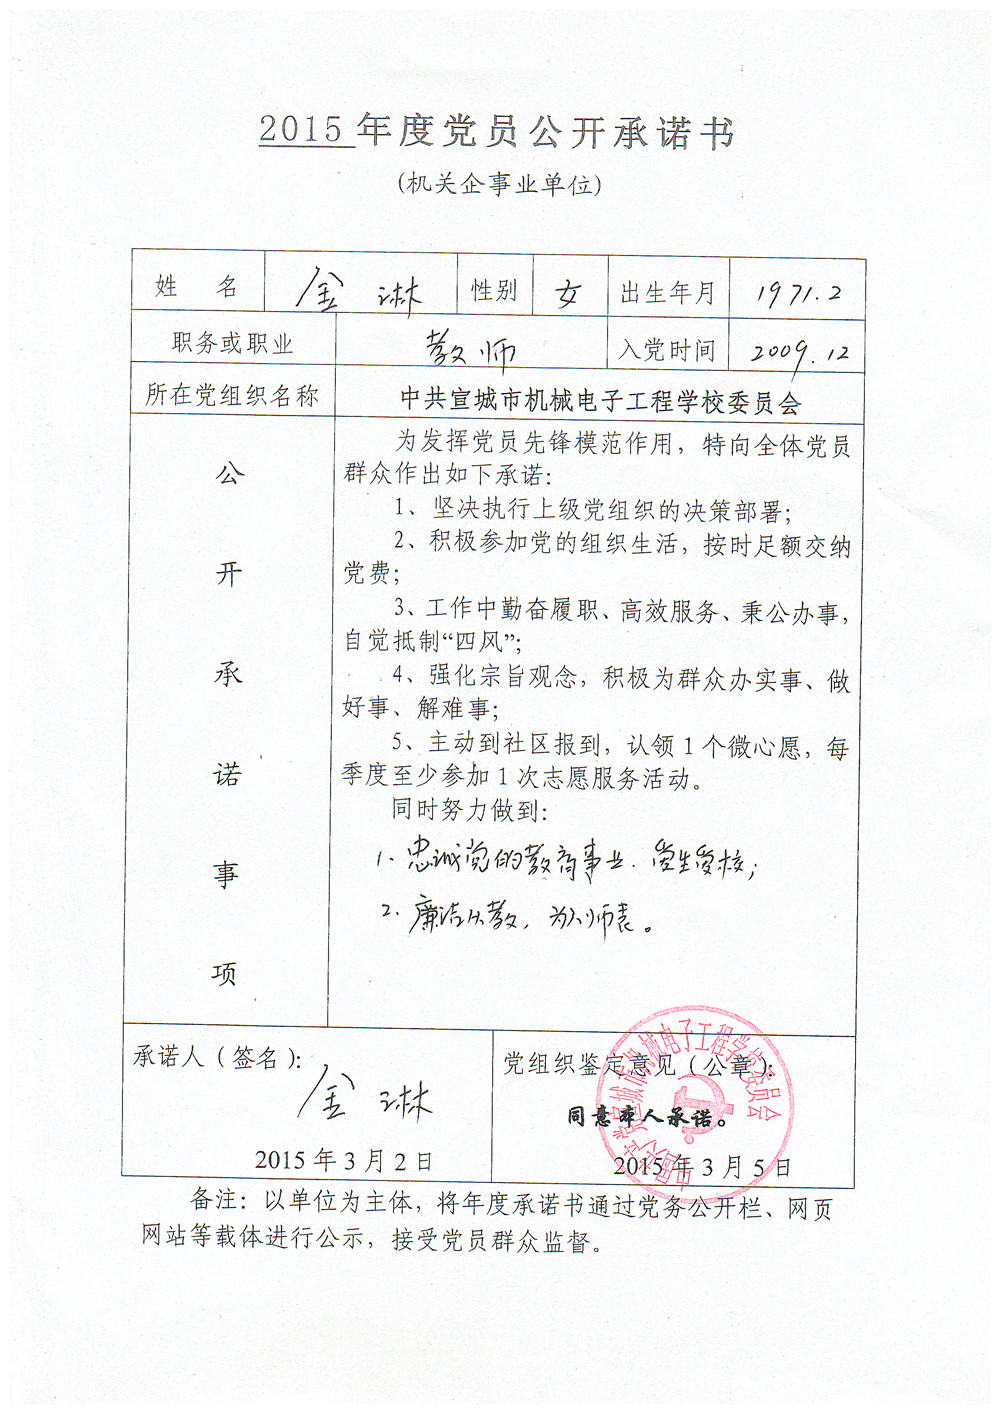 2015 年度党员公开承诺书
(机关企事业单位)
姓 名 金琳 性别 女 出生年月 1971.2
职务或职业 教师 入党时间 2009.12
所在党组织名称 中共宣城市机械电子工程学校委员会
公开承诺事项
为发挥党员先锋模范作用，特向全体党员
群众作出如下承诺：
1、坚决执行上级党组织的决策部署；
2、积极参加党的组织生活，按时足额交纳
党费；
3、工作中勤奋履职、高效服务、秉公办事，
自觉抵制“四风”；
4、强化宗旨观念，积极为群众办实事、做
好事、解难事；
5、主动到社区报到，认领 1 个微心愿，每
季度至少参加 1 次志愿服务活动。
同时努力做到：
1. 忠诚党的教育事业．爱生爱校；
2. 廉洁从教，为人师表。
承诺人（签名）：
金琳
2015 年 3 月 2 日
党组织鉴定意见（公章）：
同意本人承诺。
2015 年 3 月 5 日
中国共产党宣城市机械电子工程学校委员会
备注：以单位为主体，将年度承诺书通过党务公开栏、网页
网站等载体进行公示，接受党员群众监督。